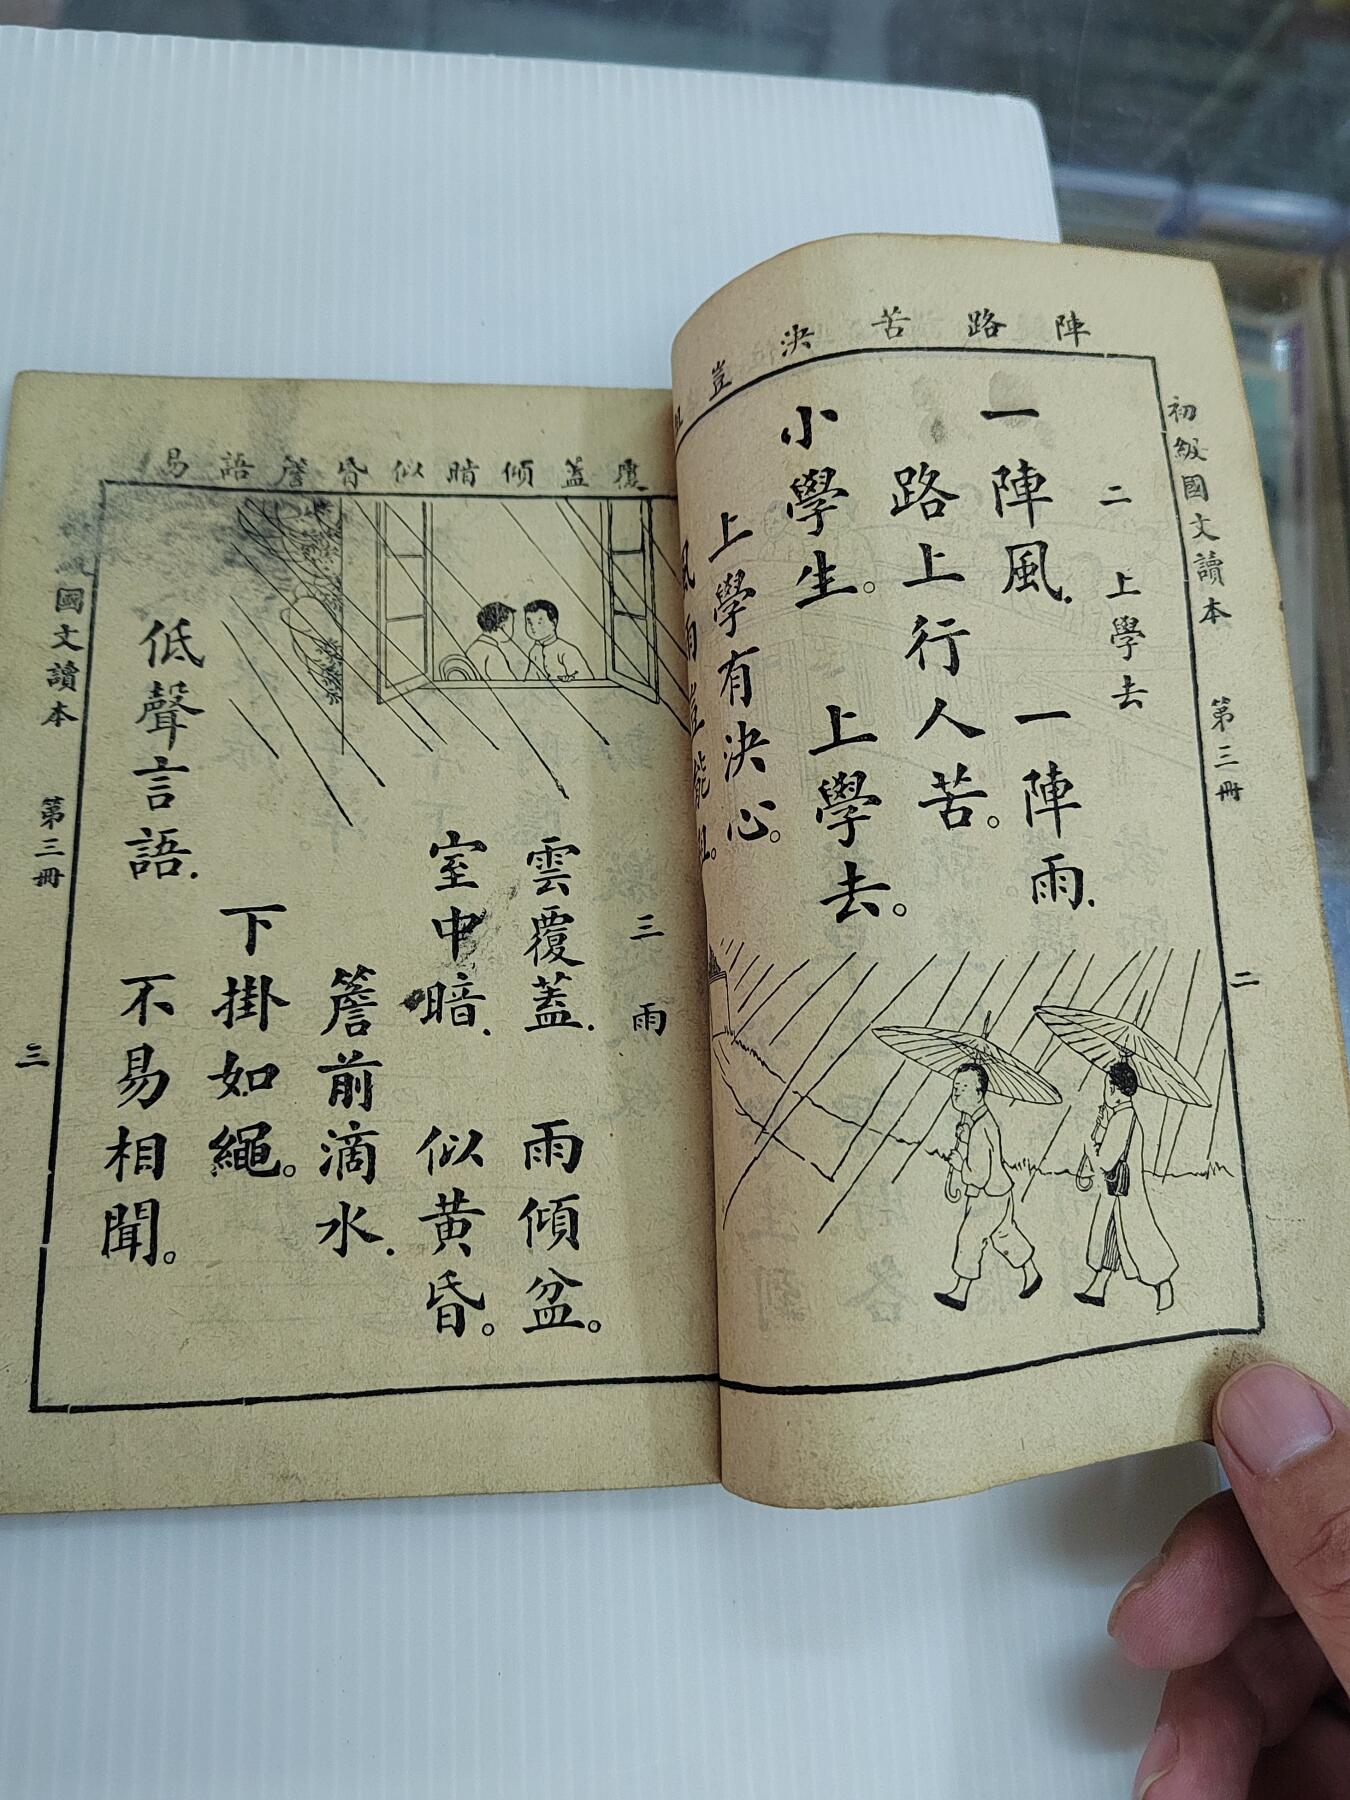 初級國文讀本 第三冊 二
陣路苦決豈
二 上學去
一陣風. 一陣雨.
路上行人苦。
小學生。 上學去。
上學有決心。
風雨豈能阻。
覆蓋傾暗似昏簷語易
三 雨
雲覆蓋. 雨傾盆。
室中暗. 似黃昏。
簷前滴水.
下掛如繩。
低聲言語. 不易相聞。
國文讀本 第三冊 三